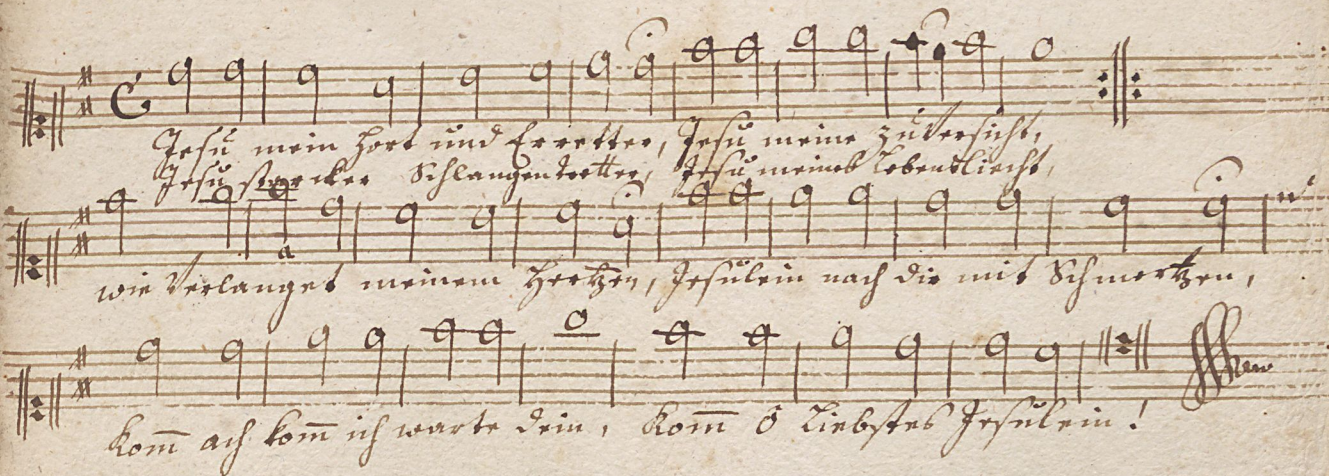 Jesu mein Hort und Erretter, Jesu meine Zuversicht,
Jesu starcker Schlangentretter, Jesu meines Lebensliecht,
wie Verlanget meinem Hertzen, Jesulein nach dir mit Schmertzen,
Kom̅ ach kom̅ ich warte dein, Kom̅ ô Liebstes Jesulein!